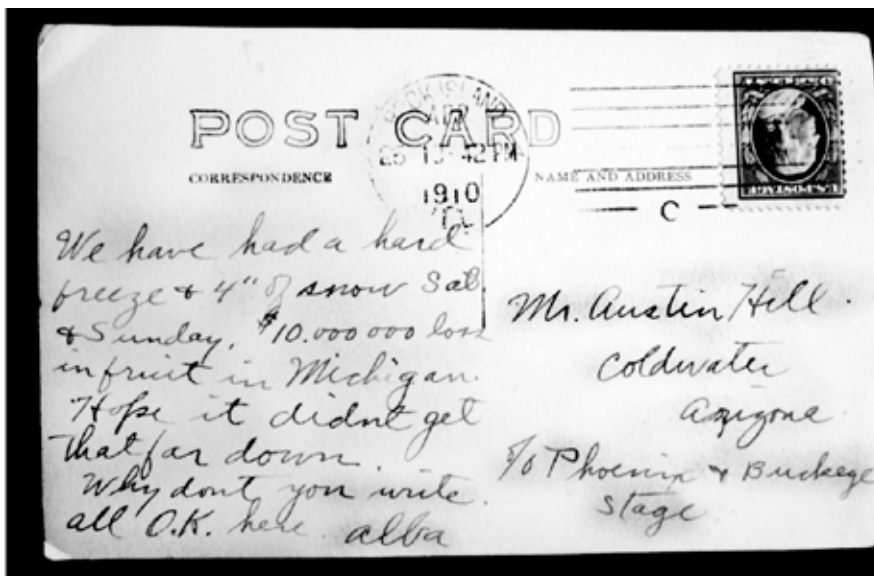 POST CARD
ROCK ISLAND
APR
25 12-42 PM
1910
ILL.
CORRESPONDENCE
NAME AND ADDRESS
C
U.S.POSTAGE
We have had a hard
freeze & 4" of snow Sat
& Sunday. $10.000 000 loss
in fruit in Michigan.
Hope it didnt get
that far down.
Why dont you write.
all O.K. here alba
Mr. Austin Hill.
Coldwater
Arizona
c/o Phoenix & Buckeye
Stage